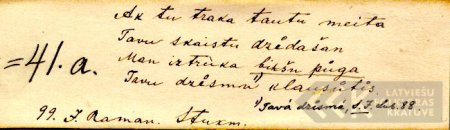 Ak tu traka tautu meita
Tavu skaistu dzēdašan
=41.a. Man iztruka bikšu pūga
Tavu dzēsmu klausūtis.
Tavā dzēsmē
99. J. Raman. Stuxm.
LATVIEŠU
KRĀTUVE